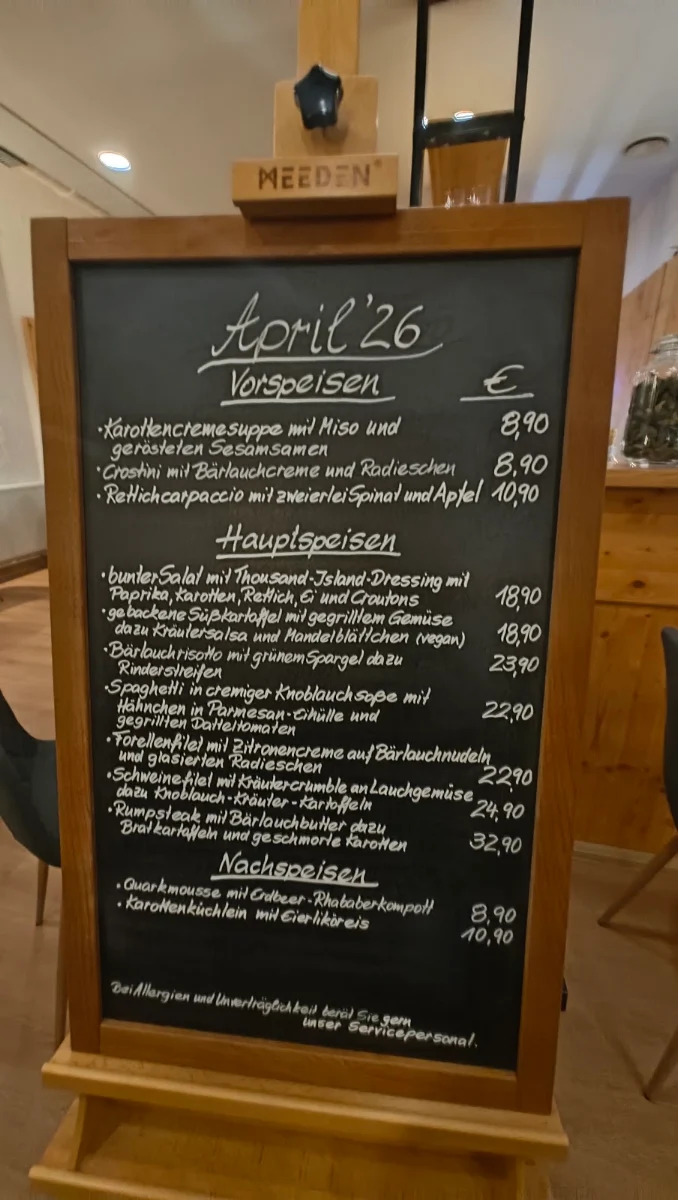 MEEDEN®
April '26
Vorspeisen €
• Karottencremesuppe mit Miso und 8,90
gerösteten Sesamsamen
• Crostini mit Bärlauchcreme und Radieschen 8,90
• Rettichcarpaccio mit zweierlei Spinat und Apfel 10,90
Hauptspeisen
• bunter Salat mit Thousand-Island-Dressing mit
Paprika, Karotten, Rettich, Ei und Croutons 18,90
• gebackene Süßkartoffel mit gegrilltem Gemüse
dazu Kräutersalsa und Mandelblättchen (vegan) 18,90
• Bärlauchrisotto mit grünem Spargel dazu 23,90
Rinderstreifen
• Spaghetti in cremiger Knoblauchsoße mit
Hähnchen in Parmesan-Eihülle und 22,90
gegrillten Datteltomaten
• Forellenfilet mit Zitronencreme auf Bärlauchnudeln
und glasierten Radieschen 22,90
• Schweinefilet mit Kräutercrumble an Lauchgemüse
dazu Knoblauch-Kräuter-Kartoffeln 24,90
• Rumpsteak mit Bärlauchbutter dazu
Bratkartoffeln und geschmorte Karotten 32,90
Nachspeisen
• Quarkmousse mit Erdbeer-Rhabarberkompott 8,90
• Karottenküchlein mit Eierliköreis 10,90
Bei Allergien und Unverträglichkeit berät Sie gern
unser Servicepersonal.